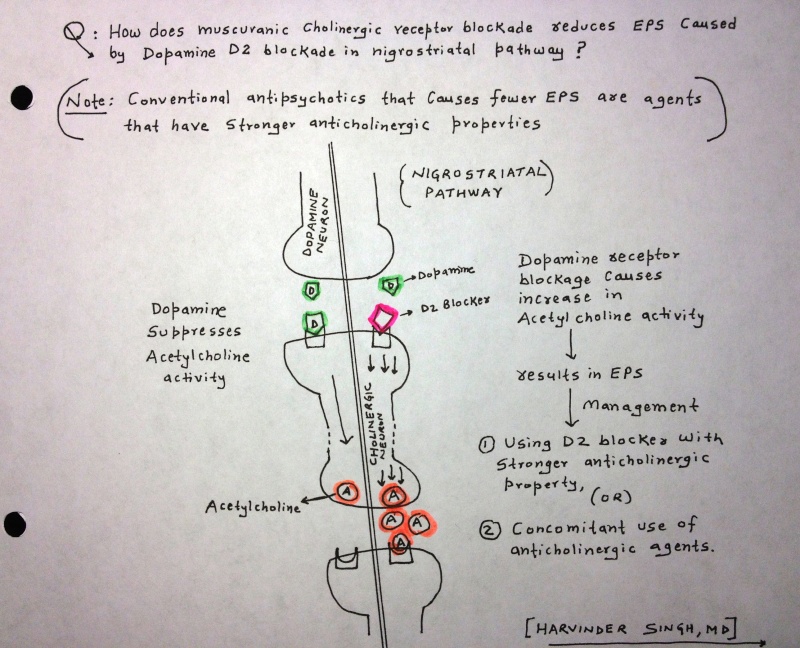 Q: How does muscuranic Cholinergic receptor blockade reduces EPS Caused
by Dopamine D2 blockade in nigrostriatal pathway?
(Note: Conventional antipsychotics that Causes fewer EPS are agents
that have Stronger anticholinergic properties)
(NIGROSTRIATAL
PATHWAY)
DOPAMINE
NEURON
D
D
Dopamine
D
D2 Blocker
Dopamine
Suppresses
Acetylcholine
activity
Dopamine receptor
blockage causes
increase in
Acetyl choline activity
results in EPS
Management
CHOLINERGIC
NEURON
① Using D2 blocker with
Stronger anticholinergic
property,
(OR)
② Concomitant use of
anticholinergic agents.
Acetylcholine
A
A
A
A
A
[HARVINDER SINGH, MD]